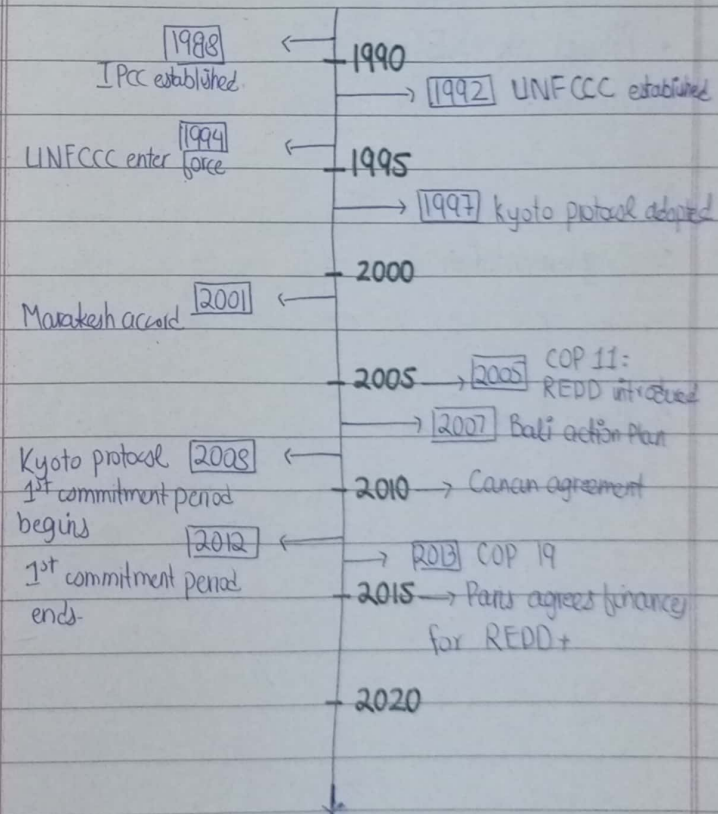 1988
IPCC established.
1990
1992 UNFCCC established
1994
UNFCCC enter force
1995
1997 Kyoto protocol adopted
2000
2001
Marakesh accord
2005 2005 COP 11:
REDD introdued
2007 Bali action Plan
Kyoto protocol 2008
1st commitment period
begins
2010 Cancun agreement
2012
1st commitment period
ends.
2013 COP 19
2015 Paris agrees finance
for REDD+
2020